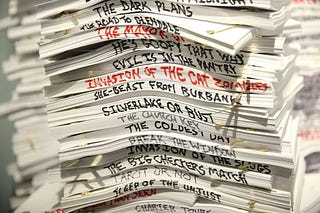 MIDNIGHT
THE DARK PLANS
ROAD TO GLENDALE
THE MAYOR
HE'S GOOFY THAT WAY
EVIL IS IN THE PANTRY
INVASION OF THE CAT ZOMBIES
SHE-BEAST FROM BURBANK
SILVERLAKE OR BUST
THE CHURCH
THE COLDEST DAY
BREAK THE WINDOW
INVASION OF THE SLUGS
THE BIG CHECKERS MATCH
TAROT OR NOT
SLEEP OF THE UNJUST
CHARTER